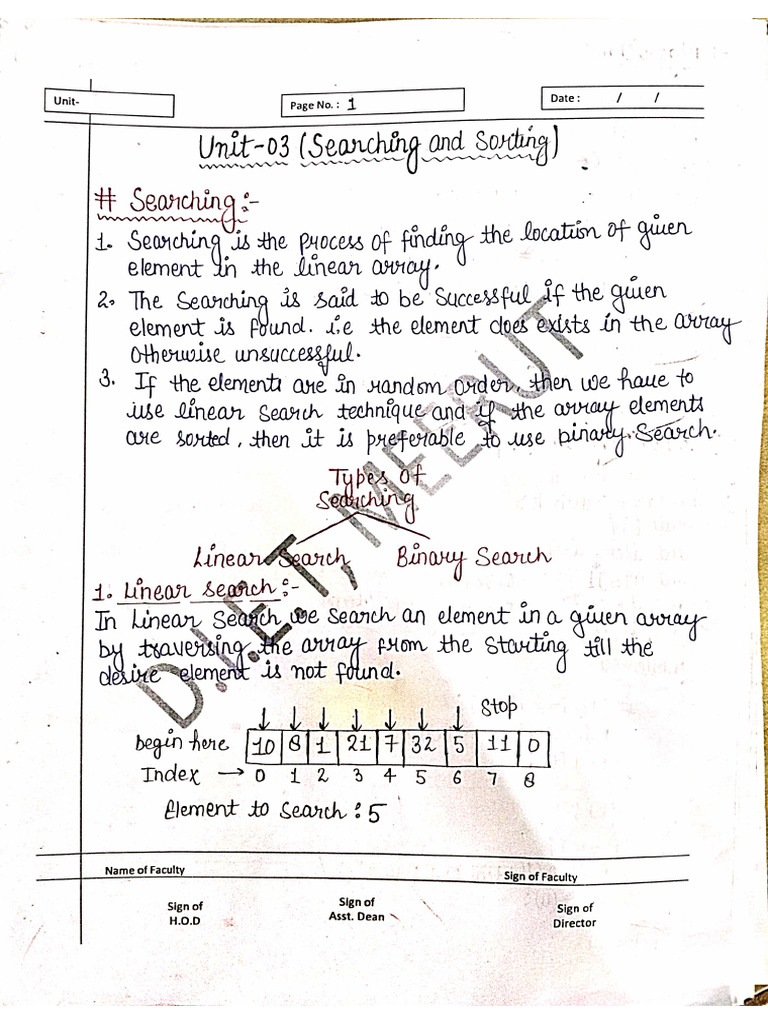 Unit-
Page No. : 1
Date : / /
Unit-03 (Searching and Sorting)
# Searching:-
1. Searching is the process of finding the location of given
element in the linear array.
2. The Searching is said to be Successful if the given
element is found. i.e the element does exists in the array
Otherwise unsuccessful.
3. If the elements are in random order, then we have to
use linear Search technique and if the array elements
are sorted, then it is preferable to use binary Search.
Types of
Searching
Linear Search Binary Search
1. Linear Search:-
In Linear Search we Search an element in a given array
by traversing the array from the Starting till the
desire element is not found.
Stop
begin here 10 8 1 21 7 32 5 11 0
Index → 0 1 2 3 4 5 6 7 8
Element to Search : 5
D.I.E.T, MEERUT
Name of Faculty
Sign of Faculty
Sign of
H.O.D
Sign of
Asst. Dean
Sign of
Director